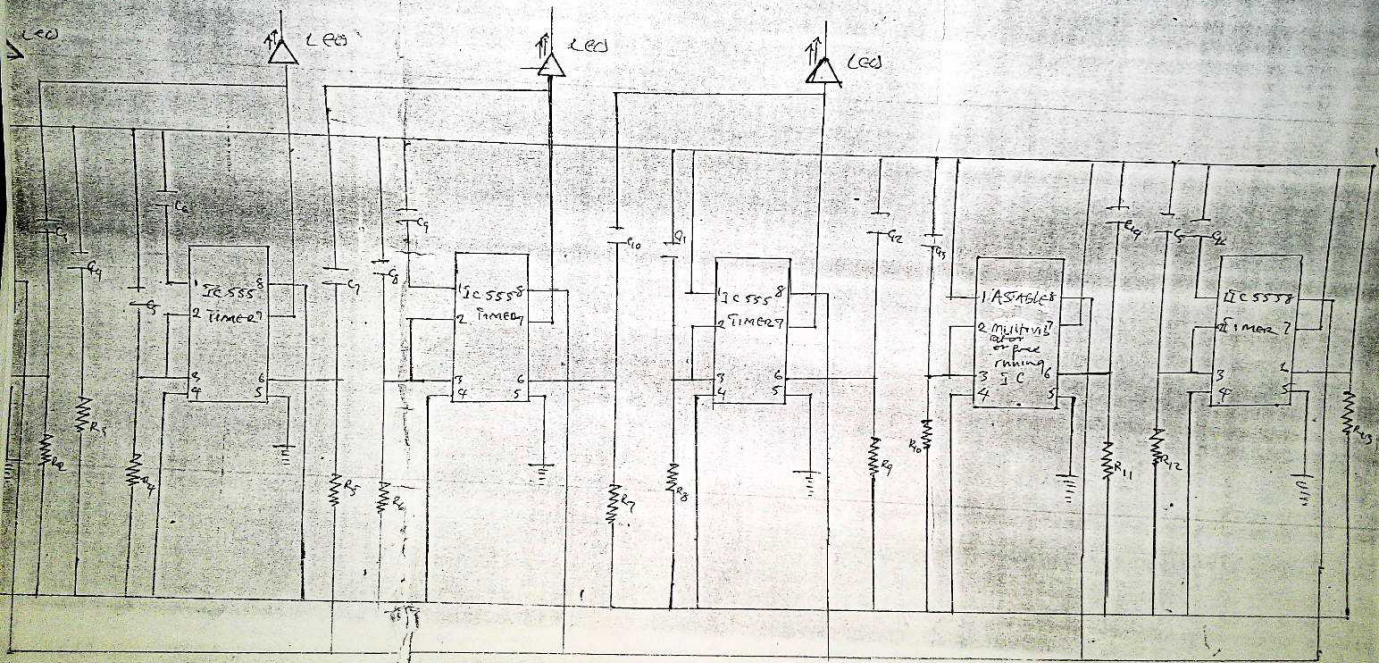 LED
LED
LED
LED
C4
C5
C6
1 IC555 8
2 TIMER 7
3 6
4 5
R3
R4
C7
C8
C9
1 IC555 8
2 TIMER 7
3 6
4 5
R5
R6
C10
1 IC555 8
2 TIMER 7
3 6
4 5
R7
R8
C12
1 ASTABLE 8
2 multivib 7
ator
or free
running
3 IC 6
4 5
R9
R10
R11
C14
1 IC555 8
2 TIMER 7
3
4 5
R12
R13